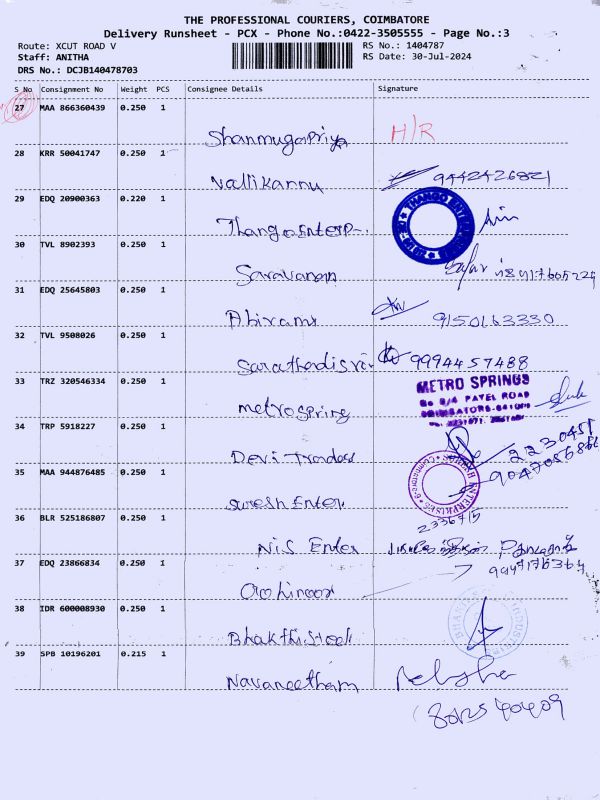 THE PROFESSIONAL COURIERS, COIMBATORE
Delivery Runsheet - PCX - Phone No.:0422-3505555 - Page No.:3
Route: XCUT ROAD V
RS No.: 1404787
Staff: ANITHA
RS Date: 30-Jul-2024
DRS No.: DCJB140478703
S No Consignment No Weight PCS Consignee Details Signature
27 MAA 866360439 0.250 1
Shanmugapriya H/R
28 KRR 50041747 0.250 1
Vallikannu 9442426821
29 EDQ 20900363 0.220 1
Thango Enterp-. THANGO ENTER
30 TVL 8902393 0.250 1
Saravanan
31 EDQ 25645803 0.250 1
Abirami 9150163330
32 TVL 9508026 0.250 1
9994457488
33 TRZ 320546334 0.250 1
METRO SPRINGS
PATEL ROAD
metrospring
34 TRP 5918227 0.250 1
Devi Traders 2230451
35 MAA 944876485 0.250 1
suresh Enter ENTERPRISES
2336715
36 BLR 525186807 0.250 1
NIS Enter
37 EDQ 23866834 0.250 1
38 IDR 600008930 0.250 1
Bhakthi Steel
39 SPB 10196201 0.215 1
Navaneetham